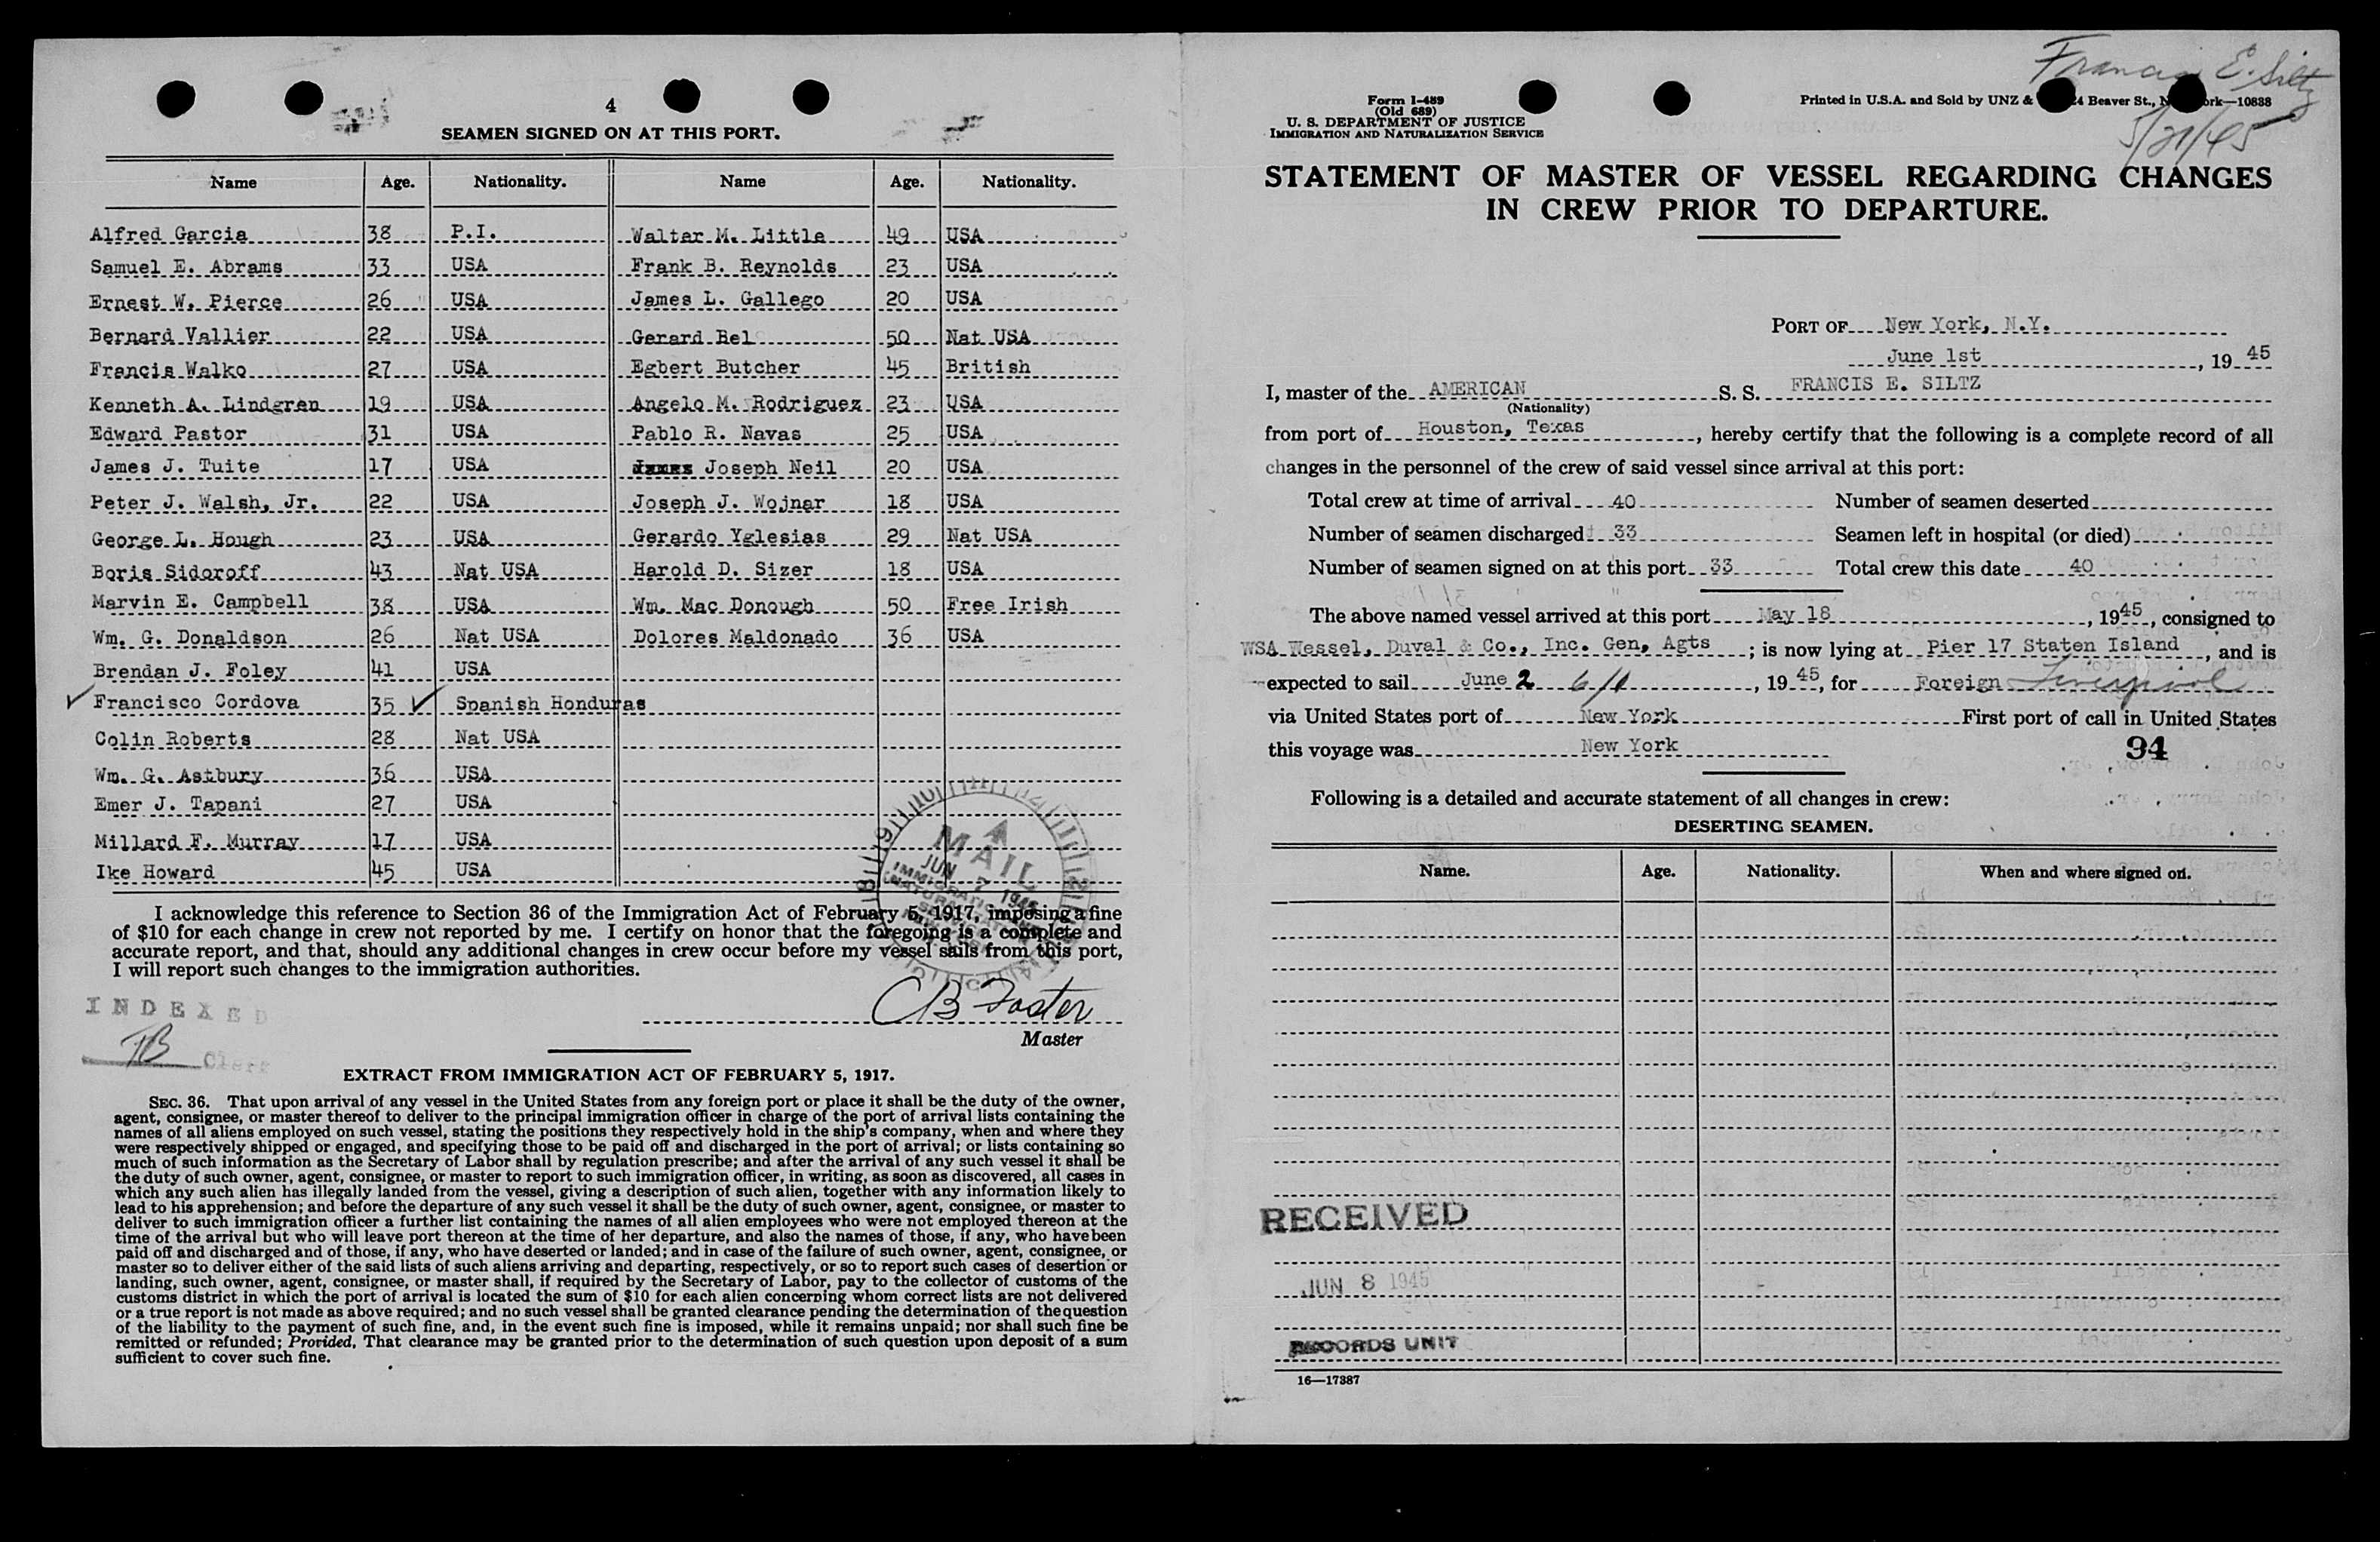 4
SEAMEN SIGNED ON AT THIS PORT.
Name Age. Nationality. Name Age. Nationality.
Alfred Garcia 38 P.I. Walter M. Little 49 USA
Samuel E. Abrams 33 USA Frank B. Reynolds 23 USA
Ernest W. Pierce 26 USA James L. Gallego 20 USA
Bernard Vallier 22 USA Gerard Bel 50 Nat USA
Francis Walko 27 USA Egbert Butcher 45 British
Kenneth A. Lindgren 19 USA Angelo M. Rodriguez 23 USA
Edward Pastor 31 USA Pablo R. Navas 25 USA
James J. Tuite 17 USA Joseph Neil 20 USA
Peter J. Walsh, Jr. 22 USA Joseph J. Wojnar 18 USA
George L. Hough 23 USA Gerardo Yglesias 29 Nat USA
Boris Sidoroff 43 Nat USA Harold D. Sizer 18 USA
Marvin E. Campbell 38 USA Wm. Mac Donough 50 Free Irish
Wm. G. Donaldson 26 Nat USA Dolores Maldonado 36 USA
Brendan J. Foley 41 USA
✓ Francisco Cordova 35 ✓ Spanish Honduras
Colin Roberts 28 Nat USA
Wm. G. Astbury 36 USA
Emer J. Tapani 27 USA
Millard F. Murray 17 USA
Ike Howard 45 USA
MAIL
JUN 7 1945
I acknowledge this reference to Section 36 of the Immigration Act of February 5, 1917, imposing a fine
of $10 for each change in crew not reported by me. I certify on honor that the foregoing is a complete and
accurate report, and that, should any additional changes in crew occur before my vessel sails from this port,
I will report such changes to the immigration authorities.
INDEXED
CB Foster
Master
Clerk
EXTRACT FROM IMMIGRATION ACT OF FEBRUARY 5, 1917.
SEC. 36. That upon arrival of any vessel in the United States from any foreign port or place it shall be the duty of the owner,
agent, consignee, or master thereof to deliver to the principal immigration officer in charge of the port of arrival lists containing the
names of all aliens employed on such vessel, stating the positions they respectively hold in the ship's company, when and where they
were respectively shipped or engaged, and specifying those to be paid off and discharged in the port of arrival; or lists containing so
much of such information as the Secretary of Labor shall by regulation prescribe; and after the arrival of any such vessel it shall be
the duty of such owner, agent, consignee, or master to report to such immigration officer, in writing, as soon as discovered, all cases in
which any such alien has illegally landed from the vessel, giving a description of such alien, together with any information likely to
lead to his apprehension; and before the departure of any such vessel it shall be the duty of such owner, agent, consignee, or master to
deliver to such immigration officer a further list containing the names of all alien employees who were not employed thereon at the
time of the arrival but who will leave port thereon at the time of her departure, and also the names of those, if any, who have been
paid off and discharged and of those, if any, who have deserted or landed; and in case of the failure of such owner, agent, consignee, or
master so to deliver either of the said lists of such aliens arriving and departing, respectively, or so to report such cases of desertion or
landing, such owner, agent, consignee, or master shall, if required by the Secretary of Labor, pay to the collector of customs of the
customs district in which the port of arrival is located the sum of $10 for each alien concerning whom correct lists are not delivered
or a true report is not made as above required; and no such vessel shall be granted clearance pending the determination of the question
of the liability to the payment of such fine, and, in the event such fine is imposed, while it remains unpaid; nor shall such fine be
remitted or refunded; Provided, That clearance may be granted prior to the determination of such question upon deposit of a sum
sufficient to cover such fine.
Francis E. Siltz
5/21/45
Form I-489
(Old 689)
U. S. DEPARTMENT OF JUSTICE
IMMIGRATION AND NATURALIZATION SERVICE
Printed in U.S.A. and Sold by UNZ & 24 Beaver St., N ork—10838
STATEMENT OF MASTER OF VESSEL REGARDING CHANGES
IN CREW PRIOR TO DEPARTURE.
PORT OF New York, N.Y.
June 1st, 19 45
I, master of the AMERICAN S. S. FRANCIS E. SILTZ
(Nationality)
from port of Houston, Texas, hereby certify that the following is a complete record of all
changes in the personnel of the crew of said vessel since arrival at this port:
Total crew at time of arrival 40 Number of seamen deserted
Number of seamen discharged 33 Seamen left in hospital (or died)
Number of seamen signed on at this port 33 Total crew this date 40
The above named vessel arrived at this port May 18, 1945, consigned to
WSA Wessel, Duval & Co., Inc. Gen, Agts; is now lying at Pier 17 Staten Island, and is
expected to sail June 2, 19 45, for Foreign Liverpool
via United States port of New York First port of call in United States
this voyage was New York
94
Following is a detailed and accurate statement of all changes in crew:
DESERTING SEAMEN.
Name. Age. Nationality. When and where signed on.
RECEIVED
JUN 8 1945
RECORDS UNIT
16—17387